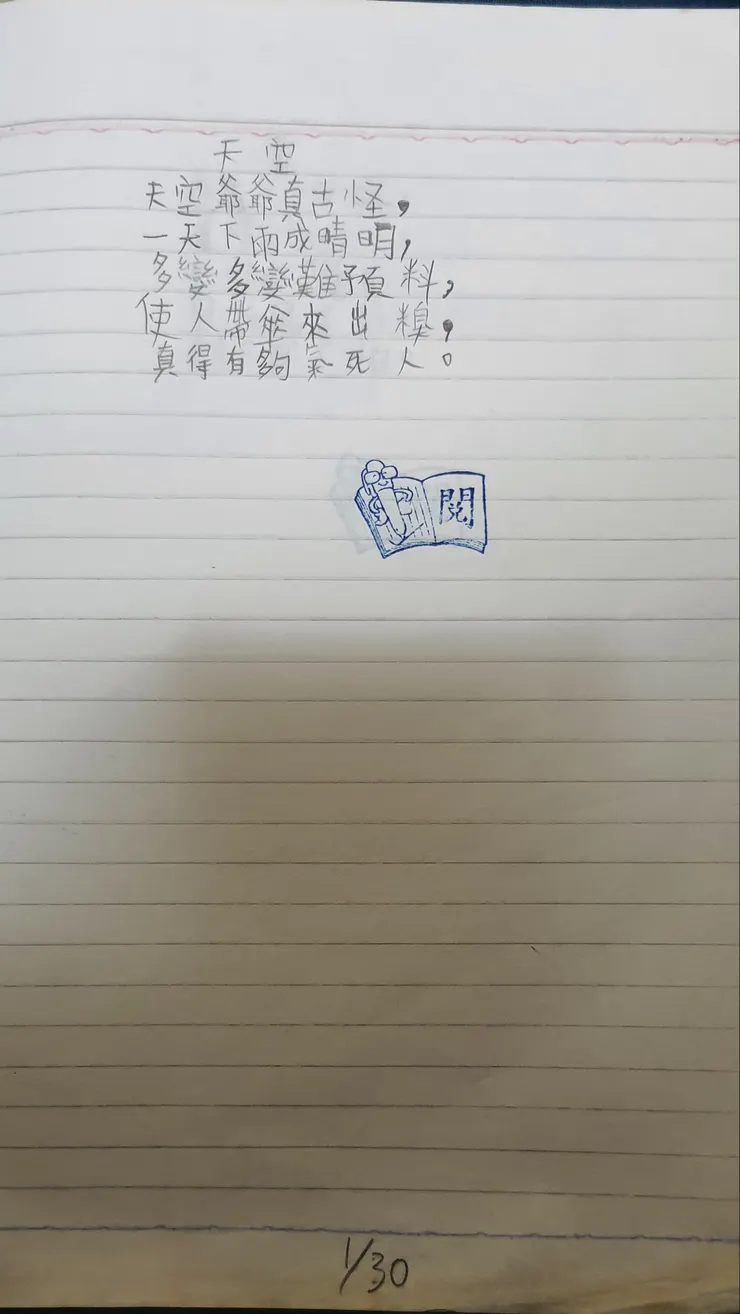 天空
天空爺爺真古怪,
一天下雨成晴明,
多變多變難預料,
使人帶傘來出糗,
真得有夠氣死人。
閱
1/30